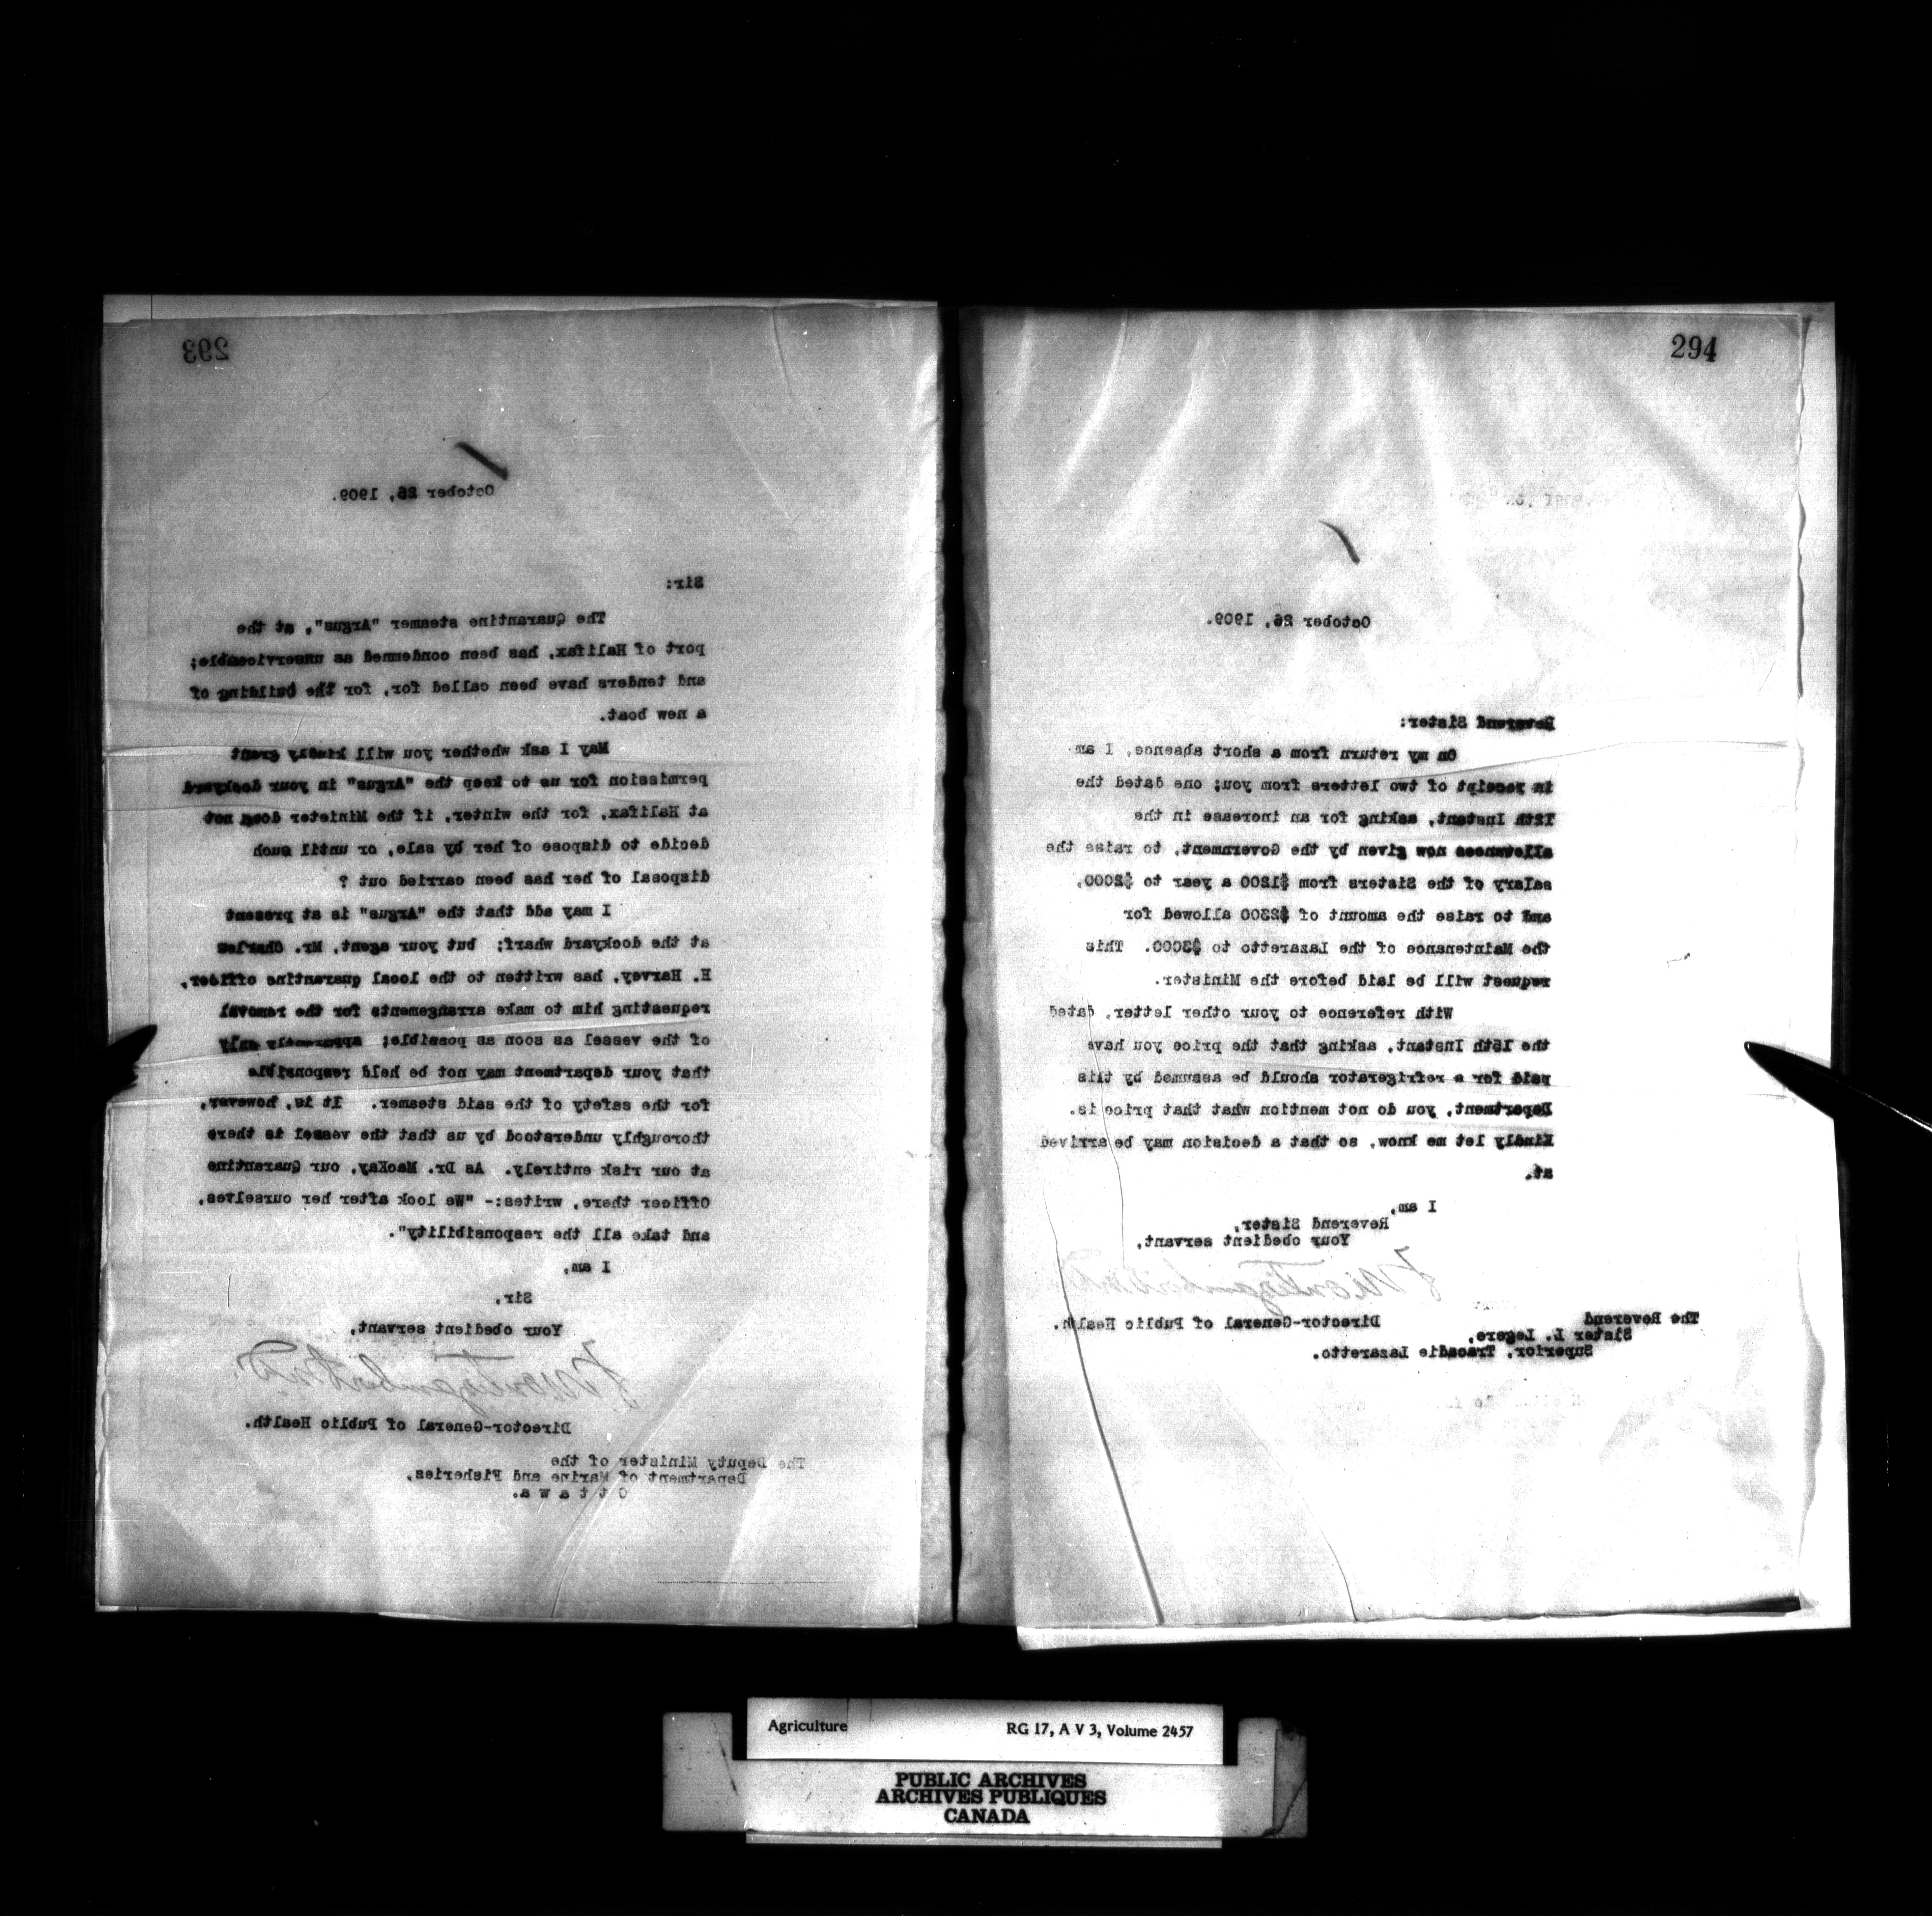 293
October 26, 1909.
Sir:
The Quarantine steamer "Argus", at the
port of Halifax, has been condemned as unserviceable;
and tenders have been called for, for the building of
a new boat.
May I ask whether you will kindly grant
permission for us to keep the "Argus" in your dockyard
at Halifax, for the winter, if the Minister does not
decide to dispose of her by sale, or until such
disposal of her has been carried out ?
I may add that the "Argus" is at present
at the dockyard wharf; but your agent, Mr. Charles
E. Harvey, has written to the local quarantine officer,
requesting him to make arrangements for the removal
of the vessel as soon as possible; apparently only
that your department may not be held responsible
for the safety of the said steamer. It is, however,
thoroughly understood by us that the vessel is there
at our risk entirely. As Dr. MacKay, our Quarantine
Officer there, writes:- "We look after her ourselves,
and take all the responsibility".
I am,
Sir,
Your obedient servant,
Director-General of Public Health.
The Deputy Minister of the
Department of Marine and Fisheries,
O t t a w a.
294
October 26, 1909.
Reverend Sister:
On my return from a short absence, I am
in receipt of two letters from you; one dated the
12th Instant, asking for an increase in the
allowances now given by the Government, to raise the
salary of the Sisters from $1200 a year to $2000,
and to raise the amount of $2300 allowed for
the Maintenance of the Lazaretto to $3000. This
request will be laid before the Minister.
With reference to your other letter, dated
the 15th Instant, asking that the price you have
paid for a refrigerator should be assumed by this
Department, you do not mention what that price is.
Kindly let me know, so that a decision may be arrived
at.
I am,
Reverend Sister,
Your obedient servant,
Director-General of Public Health.
The Reverend
Sister L. Legere,
Superior, Tracadie Lazaretto.
Agriculture RG 17, A V 3, Volume 2457
PUBLIC ARCHIVES
ARCHIVES PUBLIQUES
CANADA